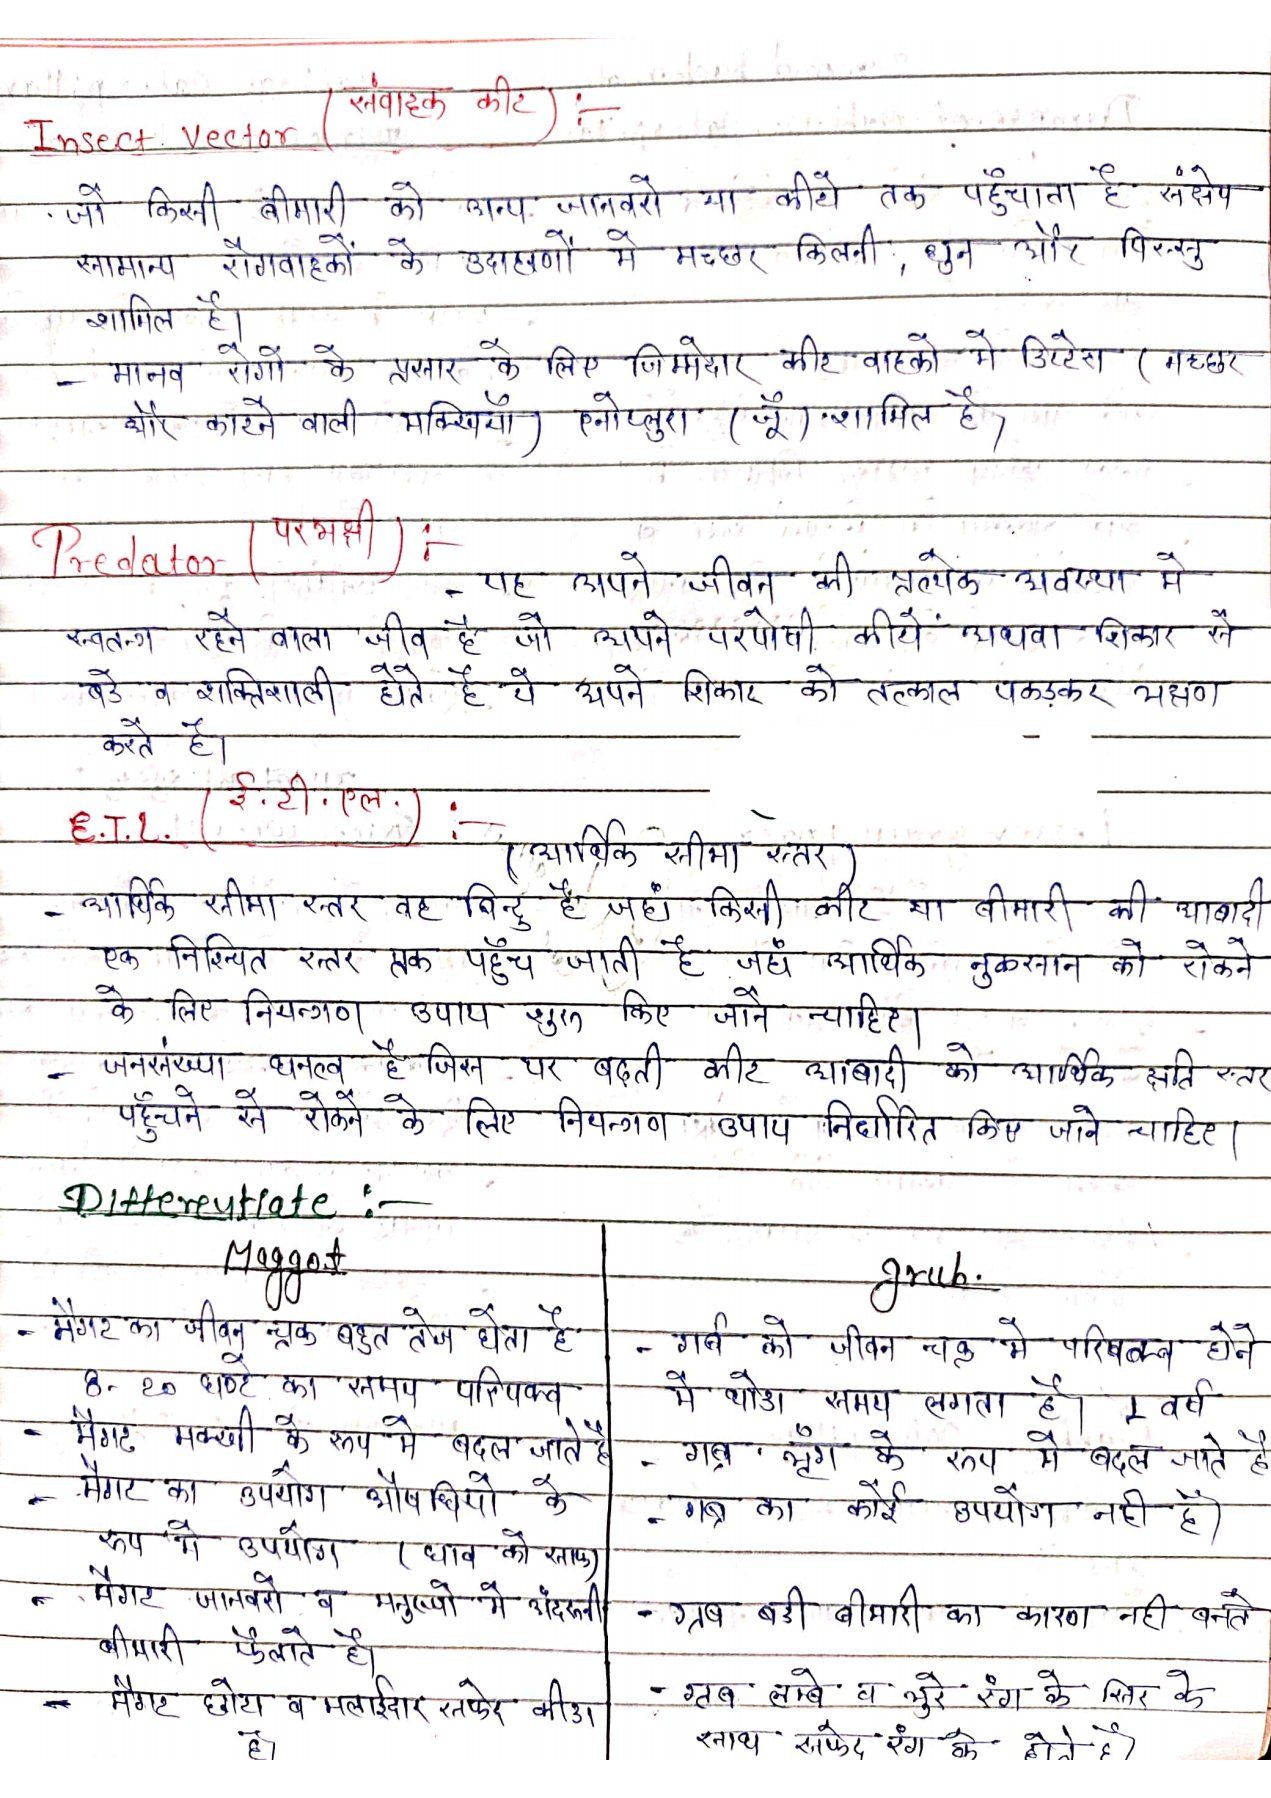 Insect Vector (संवाहक कीट) :-
जो किसी बीमारी को अन्य जानवरो या कीटो तक पहुँचाता है संक्षेप
सामान्य रोगवाहकों के उदाहरणों मे मच्छर किलनी, घुन और पिस्सु
शामिल है।
- मानव रोगों के प्रसार के लिए जिम्मेदार कीट वाहको मे डिप्टेरा (मच्छर
और काटने वाली मक्खियाँ) एनोप्लुरा (जूँ) शामिल है,
Predator (परभक्षी) :-
- यह अपने जीवन की प्रत्येक अवस्था मे
स्वतन्त्र रहने वाला जीव है जो अपने परपोषी कीटों अथवा शिकार से
बडे व शक्तिशाली होते है ये अपने शिकार को तत्काल पकड़कर भक्षण
करते है।
E.T.L. (ई.टी.एल.) :-
(आर्थिक सीमा स्तर)
- आर्थिक सीमा स्तर वह बिन्दु है जहाँ किसी कीट या बीमारी की आबादी
एक निश्चित स्तर तक पहुँच जाती है जहाँ आर्थिक नुकसान को रोकने
के लिए नियन्त्रण उपाय शुरू किए जाने चाहिए।
- जनसंख्या घनत्व है जिस पर बढती कीट आबादी को आर्थिक क्षति स्तर
पहुँचने से रोकने के लिए नियन्त्रण उपाय निर्धारित किए जाने चाहिए।
Differentiate :-
Maggot
- मैगट का जीवन चक्र बहुत तेज होता है
8-20 घण्टे का समय परिपक्व
- मैगट मक्खी के रूप मे बदल जाते है
- मैगट का उपयोग औषधियो के
रूप मे उपयोग (घाव को साफ)
- मैगट जानवरो व मनुष्यो मे अंदरूनी
बीमारी फैलाते है।
- मैगट छोटा व मलाईदार सफेद कीडा
है।
grub.
- गर्ब को जीवन चक्र मे परिपक्व होने
मे थोडा समय लगता है। 1 वर्ष
- गब्र भृंग के रूप मे बदल जाते है
- गब्र का कोई उपयोग नही है।
- ग्रब बडी बीमारी का कारण नही बनते
- ग्रब लम्बे व भुरे रंग के सिर के
साथ सफेद रंग के होते है।